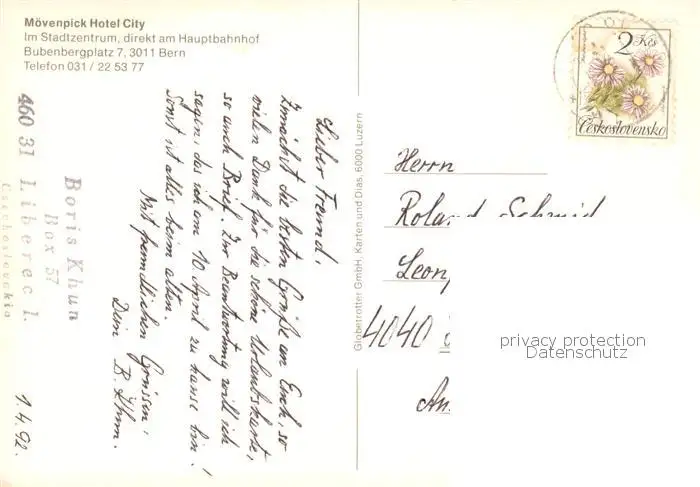 Mövenpick Hotel City
Im Stadtzentrum, direkt am Hauptbahnhof
Bubenbergplatz 7, 3011 Bern
Telefon 031 / 22 53 77
Lieber Freund,
Zunächst die besten Grüße an Euch, so
vielen Dank für die schön Urlaubskarte,
so auch Brief. Zur Beantwortung will ich
sagen, das ich am 10 April zu hause bin!
Sonst ist alles beim alten.
Mit freundlichen Grüssen,
Dein B. Khun.
1.4.92.
Boris Khun
Box 57
460 31 Liberec 1.
Czechoslovakia
Globetrotter GmbH, Karten und Dias, 6000 Luzern
2 Kčs
Československo
Herrn
Roland Schmid
Leon
4040
privacy protection
Datenschutz